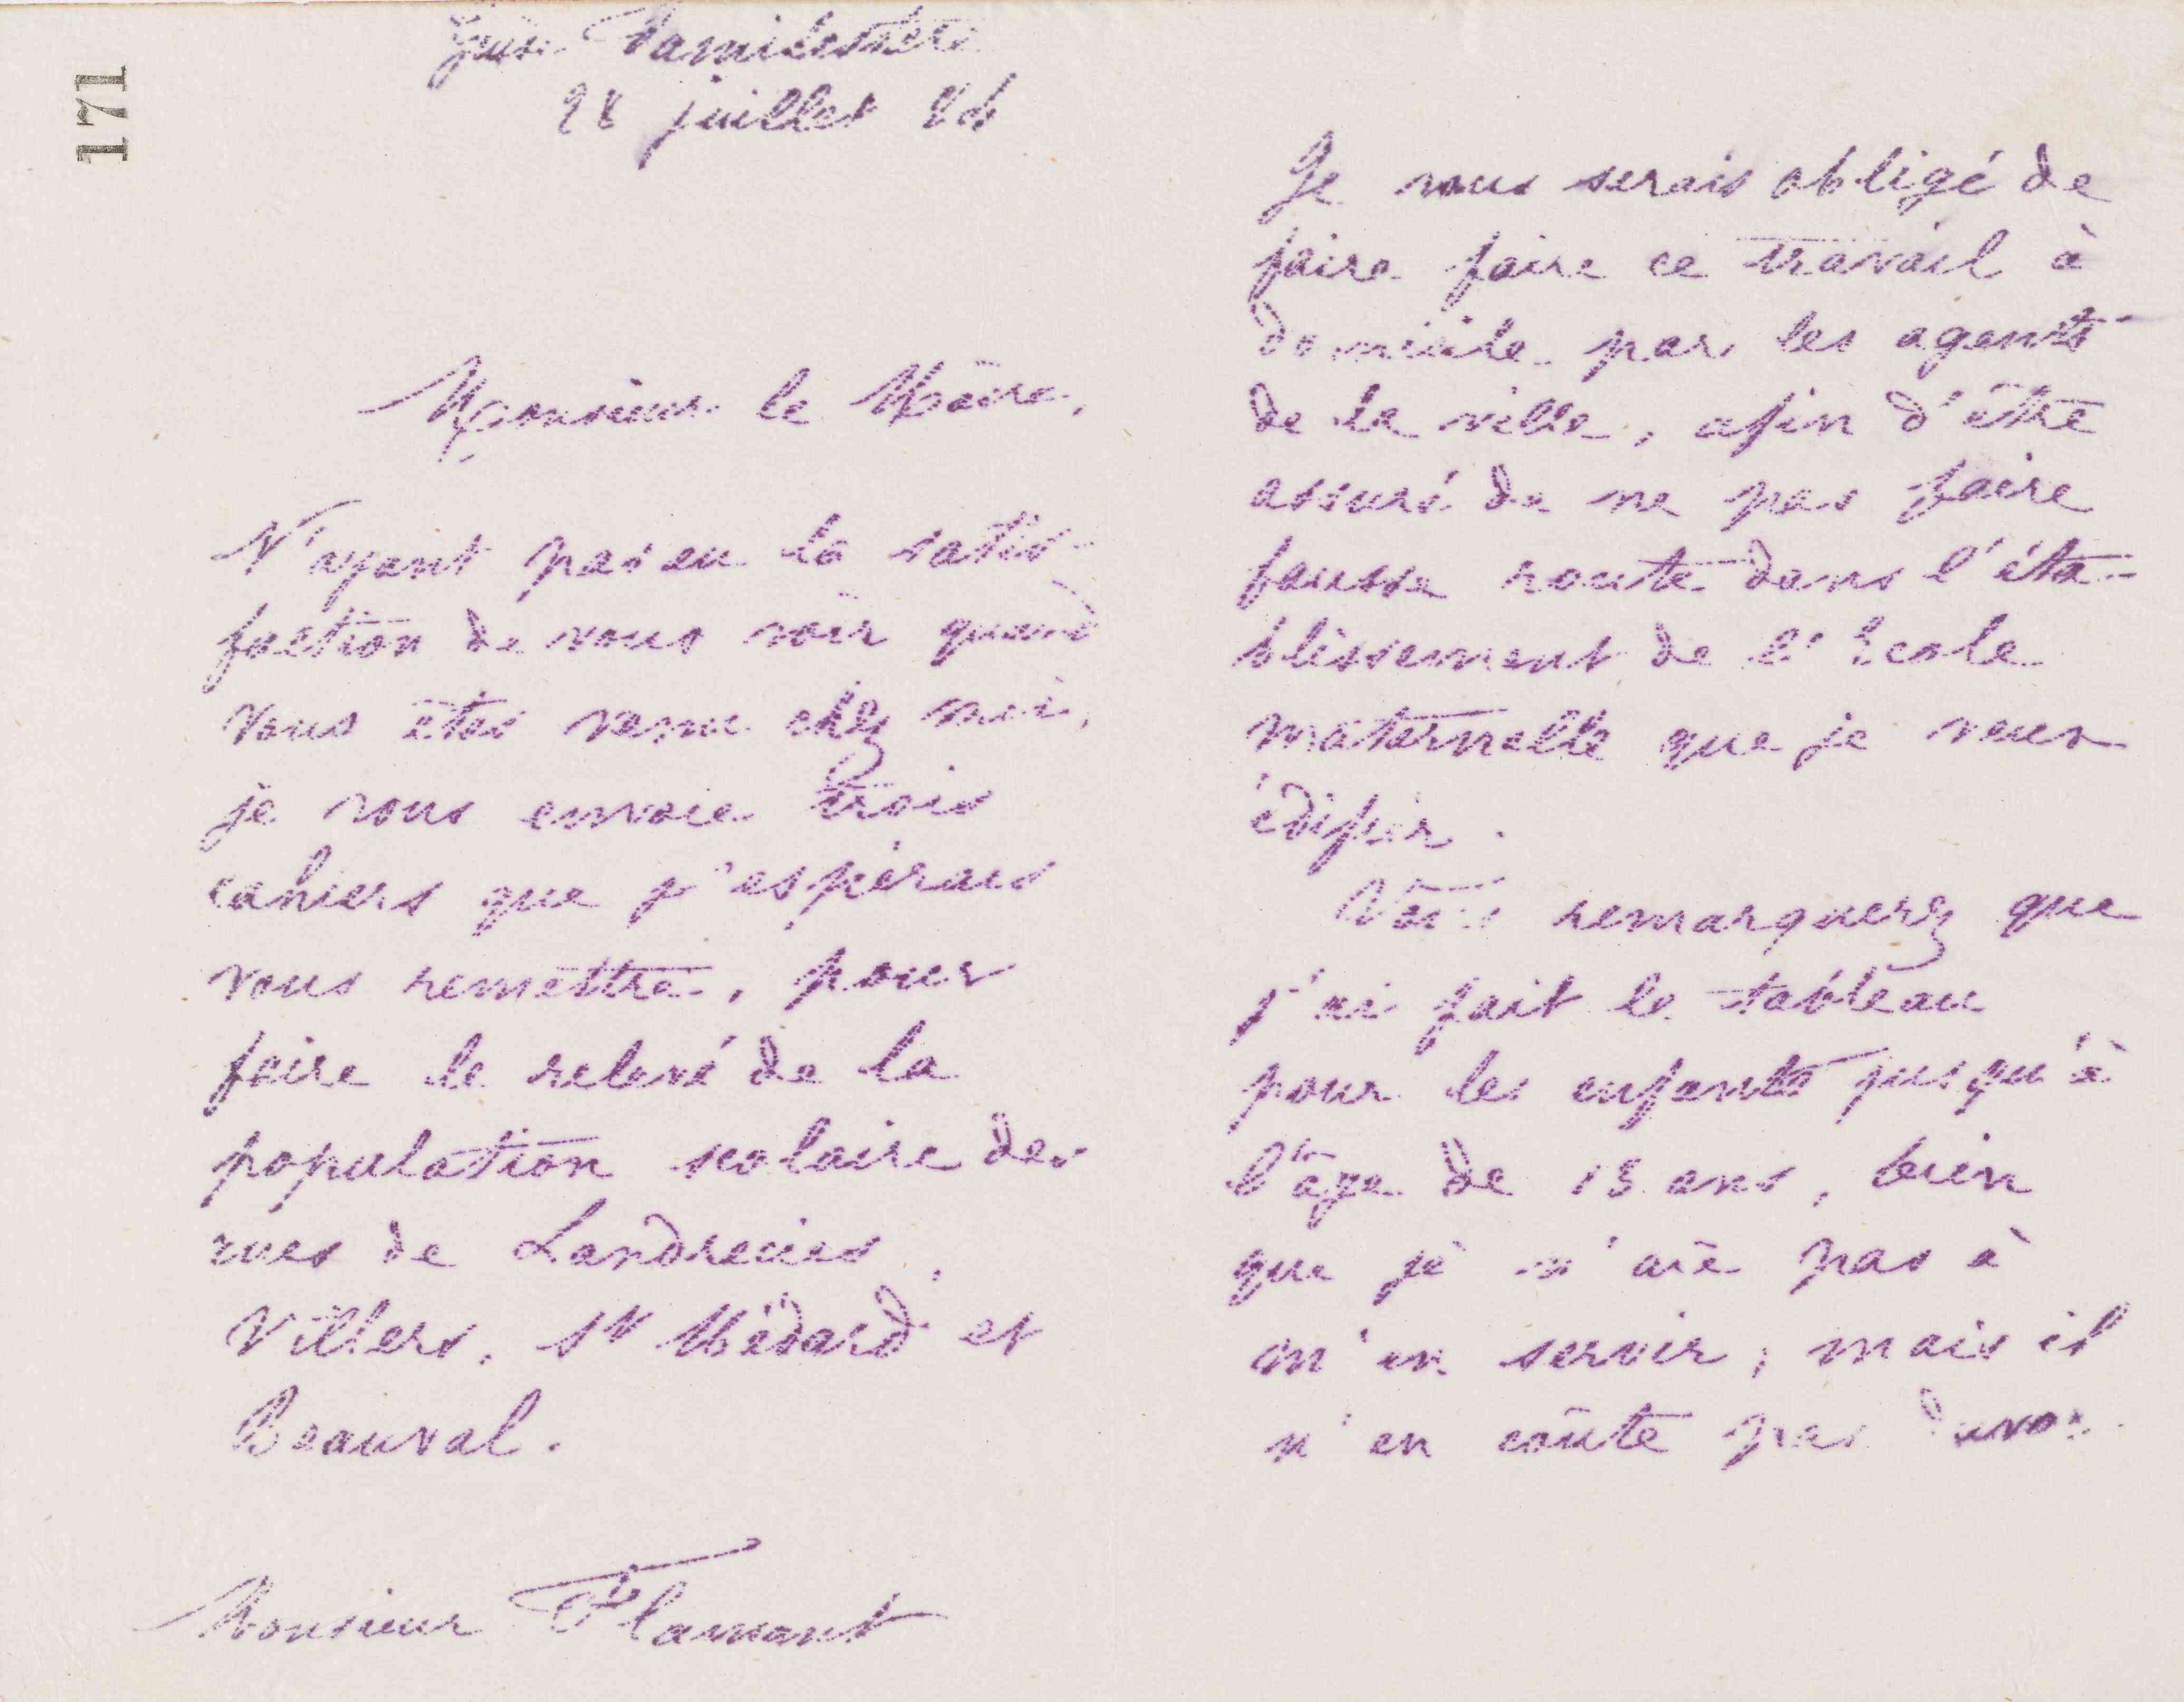 171
Guise Familistère
28 juillet 86
Monsieur le Maire,
N'ayant pas eu la satis-
faction de vous voir quand
vous êtes venu chez moi,
je vous envoie trois
cahiers que j'espérais
vous remettre, pour
faire le relevé de la
population scolaire des
rues de Landrecies,
Villers, St Médard et
Beauval.
Monsieur Flamant
Je vous serais obligé de
faire faire ce travail à
domicile par les agents
de la ville, afin d'être
assuré de ne pas faire
fausse route dans l'éta-
blissement de l'Ecole
maternelle que je veux
édifier.
Vous remarquerez que
j'ai fait le tableau
pour les enfants jusqu'à
l'âge de 13 ans, bien
que je n'aie pas à
m'en servir, mais il
n'en coûte pas